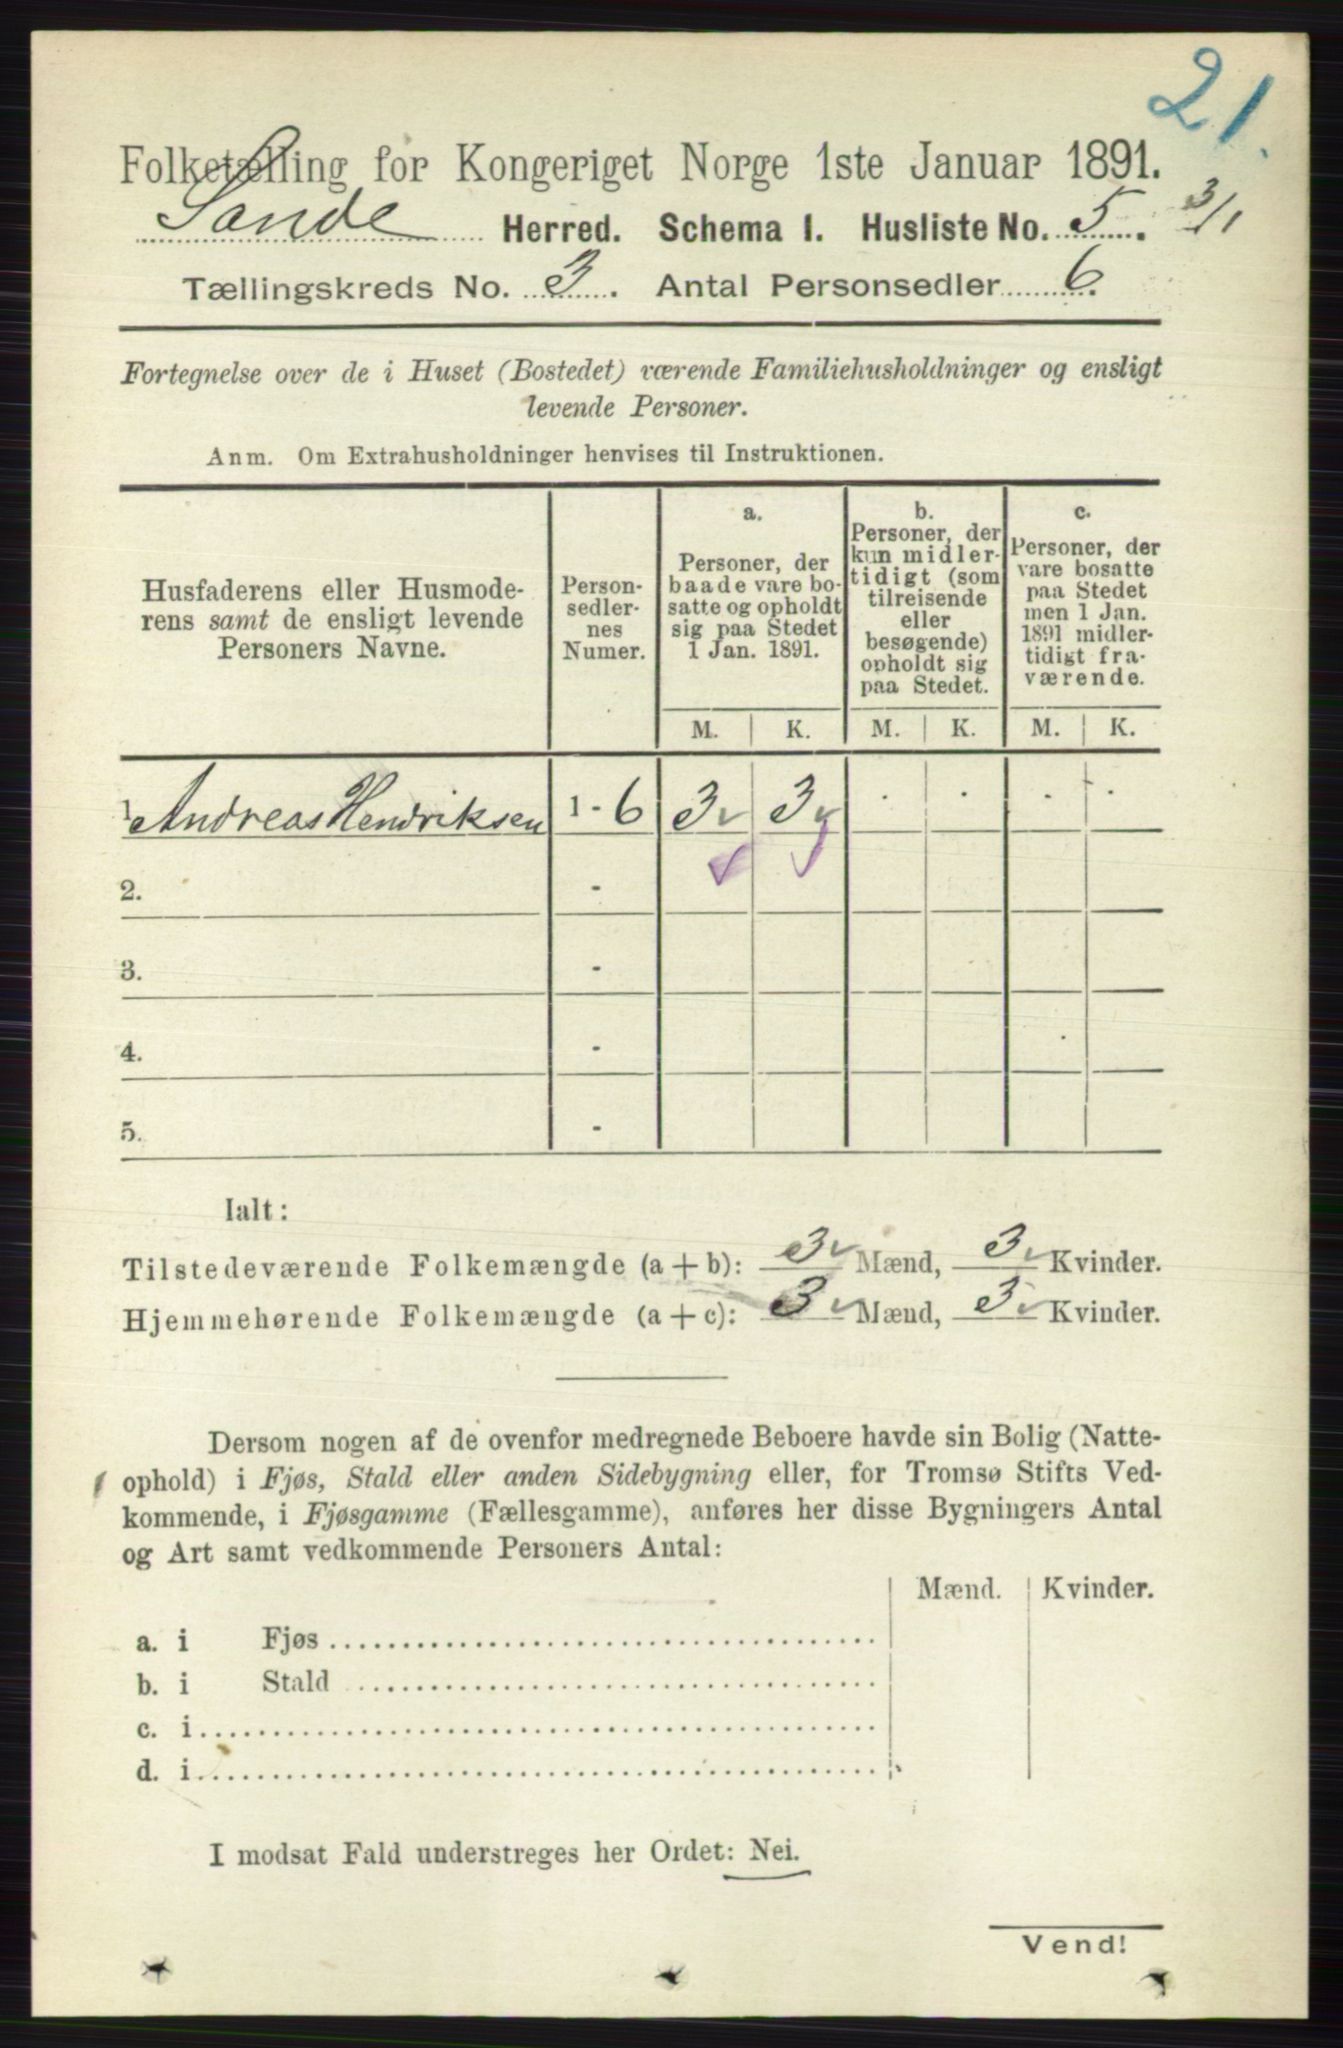 21.
Folketælling for Kongeriget Norge 1ste Januar 1891.
Sande Herred. Schema 1. Husliste No. 5. 3/1
Tællingskreds No. 3. Antal Personsedler 6.
Fortegnelse over de i Huset (Bostedet) værende Familiehusholdninger og ensligt
levende Personer.
Anm. Om Extrahusholdninger henvises til Instruktionen.
Husfaderens eller Husmode-
rens samt de ensligt levende
Personers Navne.
Person-
sedler-
nes
Numer.
a.
Personer, der
baade vare bo-
satte og opholdt
sig paa Stedet
1 Jan. 1891.
b.
Personer, der
kun midler-
tidigt (som
tilreisende
eller
besøgende)
opholdt sig
paa Stedet.
c.
Personer, der
vare bosatte
paa Stedet
men 1 Jan.
1891 midler-
tidigt fra-
værende.
M. K. M. K. M. K.
1 Andreas Hendriksen 1 - 6 3 3 . . . .
2. -
3. -
4. -
5. -
Ialt:
Tilstedeværende Folkemængde (a + b): 3 Mænd, 3 Kvinder.
Hjemmehørende Folkemængde (a + c): 3 Mænd, 3 Kvinder.
Dersom nogen af de ovenfor medregnede Beboere havde sin Bolig (Natte-
ophold) i Fjøs, Stald eller anden Sidebygning eller, for Tromsø Stifts Ved-
kommende, i Fjøsgamme (Fællesgamme), anføres her disse Bygningers Antal
og Art samt vedkommende Personers Antal:
Mænd. Kvinder.
a. i Fjøs
b. i Stald
c. i
d. i
I modsat Fald understreges her Ordet: Nei.
Vend!